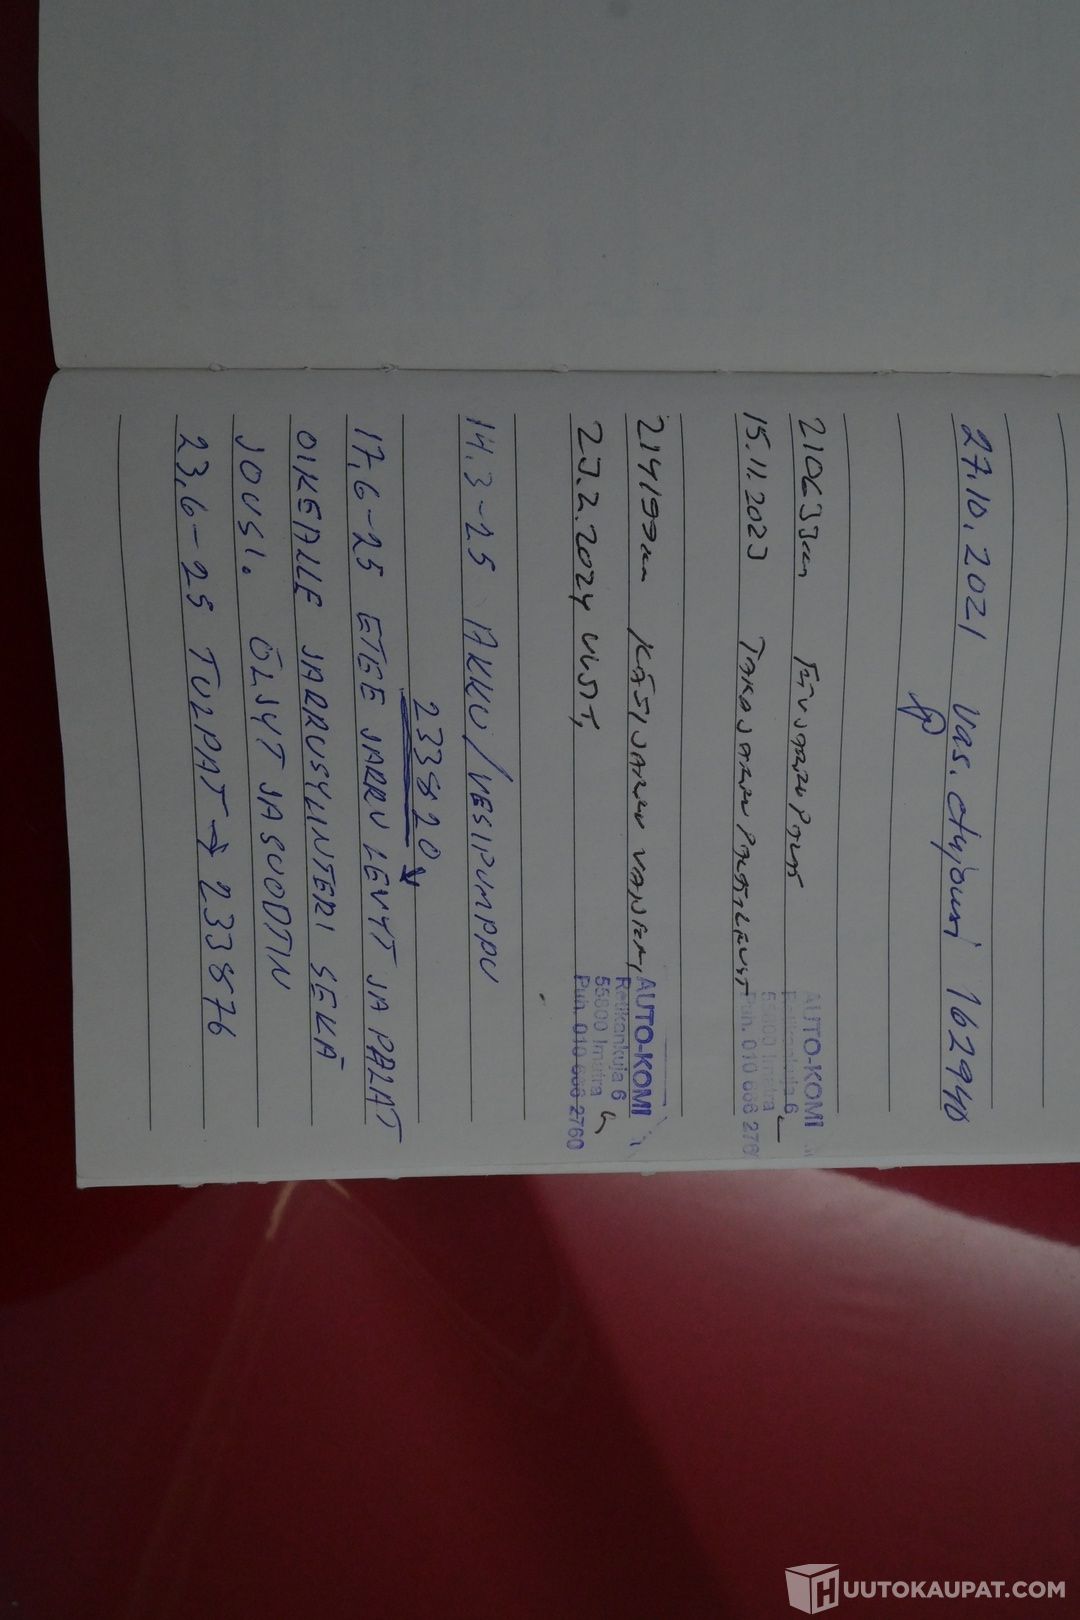 27.10.2021 vas. etujousi 162940
210633km
15.11.2023 TAKAJARRU
AUTO-KOMI
Retikankuja 6
55800 Imatra
Puh. 010 666 276
214199km KÄSIJARRU VAIJERI,
23.2.2024 UUSIT,
AUTO-KOMI
Retikankuja 6
55800 Imatra
Puh. 010 666 2760
14.3-25 AKKU/VESIPUMPPU
233820
17.6-25 ETEE JARRU LEVYT JA PALAT
OIKEALLE JARRUSYLINTERI SEKÄ
JOUSI. ÖLJYT JA SUODTIN
23.6-25 TULPAT → 233876
HUUTOKAUPAT.COM